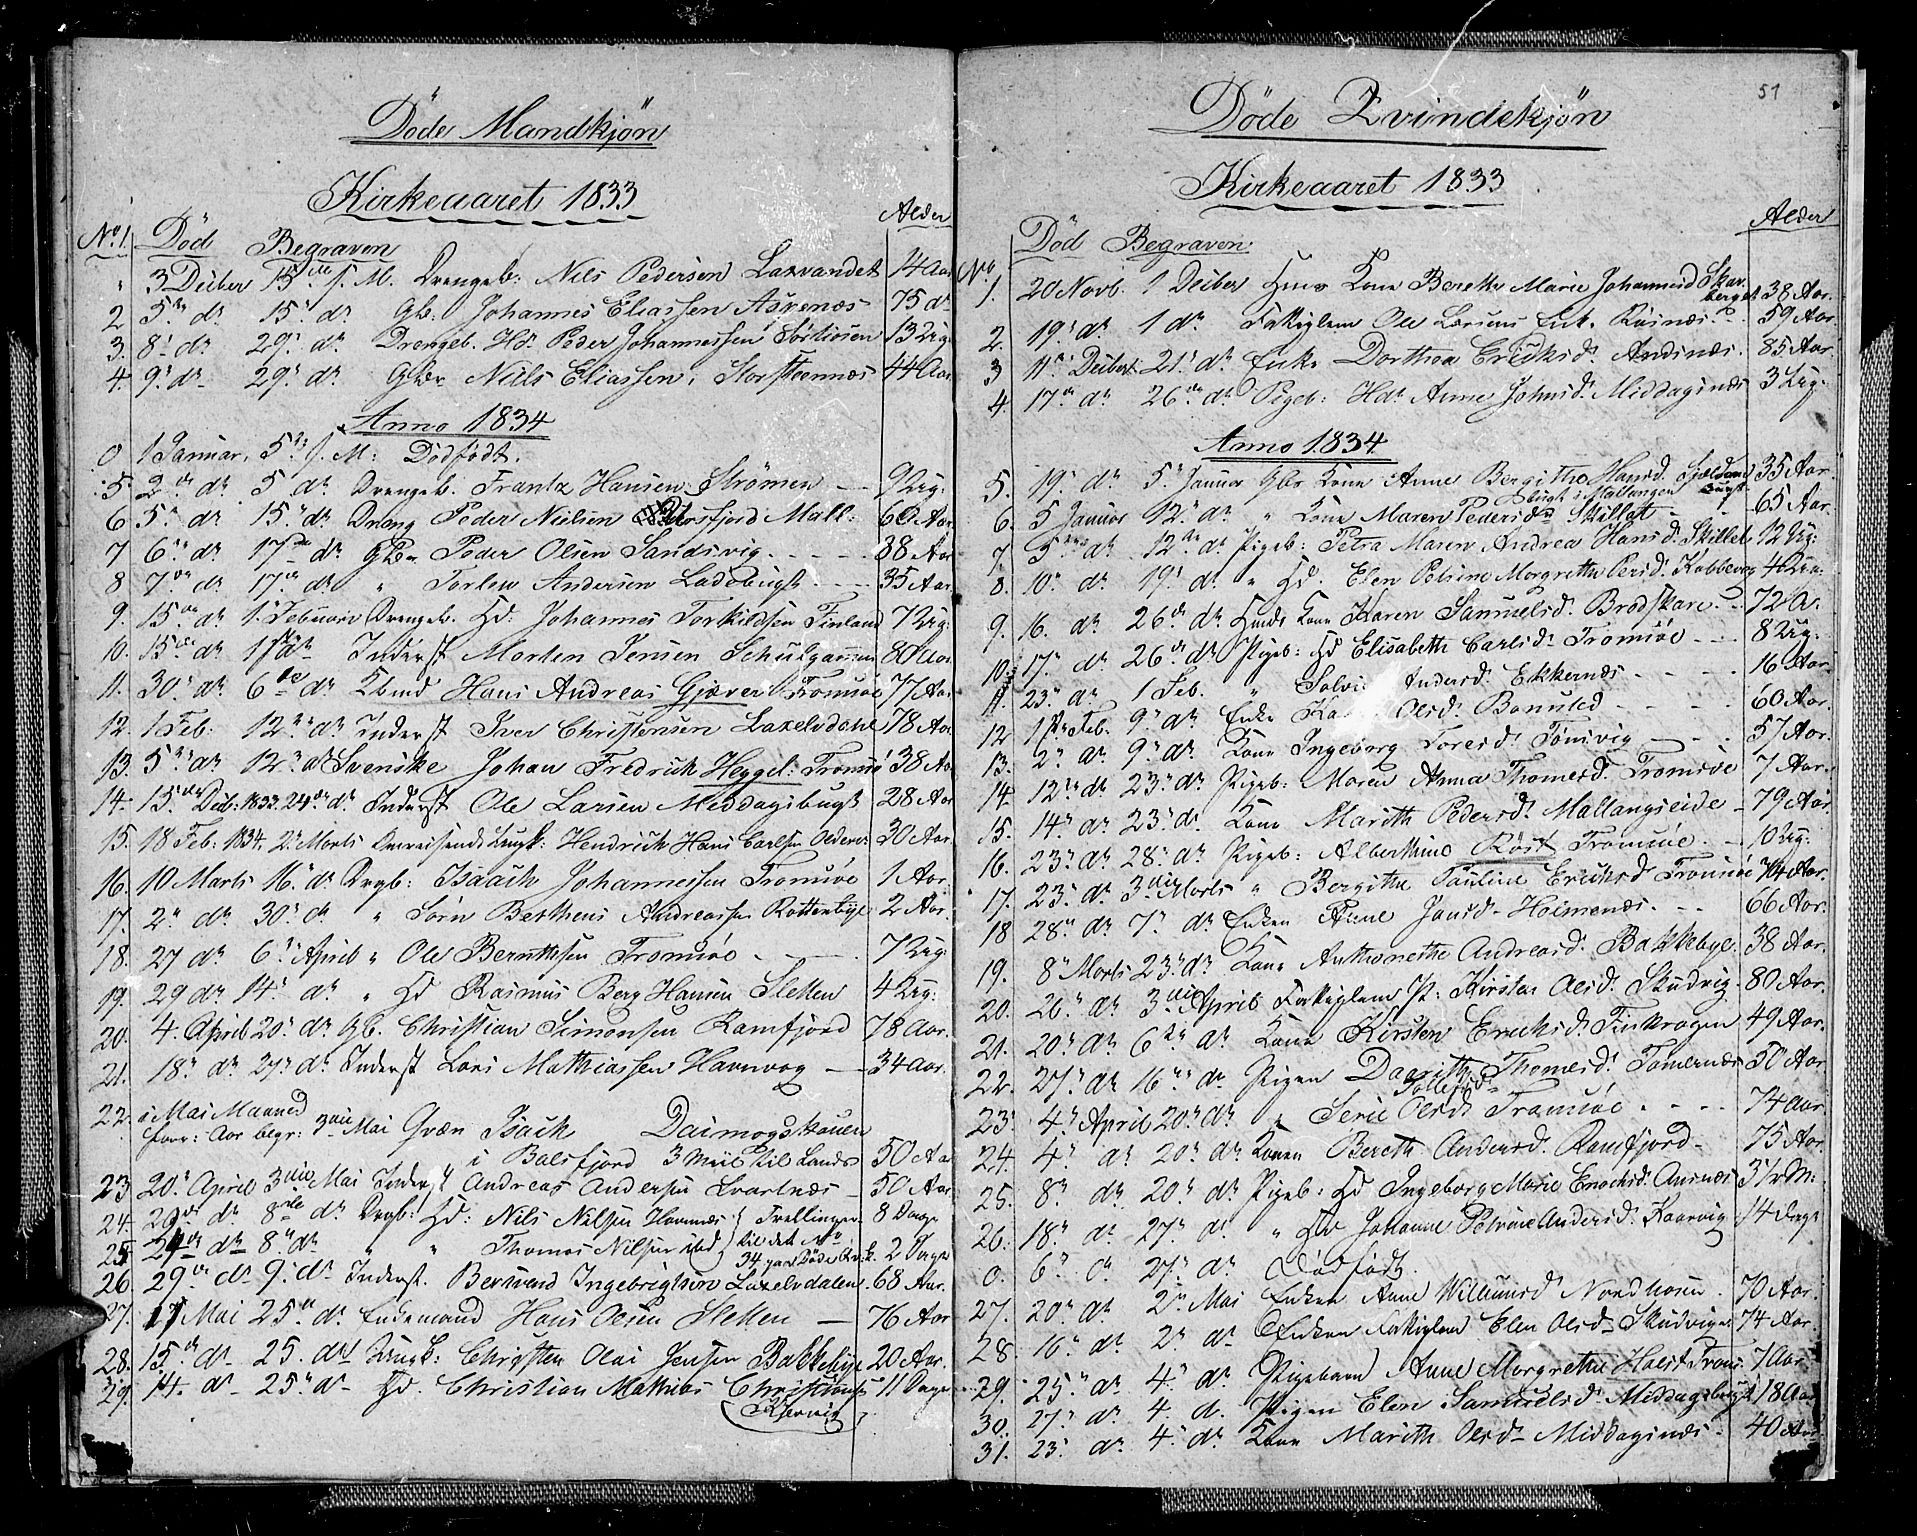 Döde Mandkjön
Kirkeaaret 1833
No 1. Död Begraven Alder
" 3 Decber 15de f. M. Drengeb: Nils Pedersen Laxvandet 14 Aar
2 5te dr 15. dr Gb: Johannes Eliassen Asvenæs 75 dr
3. 8. dr 29. dr Drengeb. Hd. Peder Johannessen Sörtiosen 13 Ug
4. 9. dr 29. dr Gbr Niels Eliassen, Storsteennæs 44 Aar
Anno 1834
0 1 Januar, 5te f. M: Dödfödt.
5. 2de dr 5 dr Drengeb. Frantz Hansen Strömen 9 Ug.
6 5. dr 15. dr Dreng Peder Nielsen Rossfjord Mall: 60 Aar
7 6te dr 17de dr Gbr Peder Olsen Sandsvig 38 Aar
8 7de dr 17de dr " Torlev Andersen Ladebugt 35 Aar
9. 15de dr 1. Februari Drengeb. Hd: Johannes Torkildsen Finland 7 Ug:
10. 15de dr 1ste dr Inderst Morten Jensen Schulgammen 80 Aar
11. 30. dr 6te dr Kbmd Hans Andreas Gjæver Tromsöe 77 Aar
12. 1 Feb: 12te dr Inderst Iver Christensen Laxelvdahl 78 Aar
13. 5te dr 12te dr Svenske Johan Fredrich Heggel: Tromsö 38 Aar
14. 15de Deb: 1833. 24de dr Inderst Ole Larsen Meddagsbugt 28 Aar
15. 18 Feb: 1834. 2. Marts Omreisende Ungk: Hendrich Hans Carlsen Oldervi 30 Aar
16. 10 Marts 16. dr Drgb: Isaach Johannessen Tromsöe 1 Aar
17. 2. dr 30. dr " Sörn Berthens Andreassen Rottenbye 2 Aar
18. 27 dr 6te April " Ole Bernthsen Tromsöe 7 Ug.
19. 29 dr 14. dr " Hd Rasmus Berg Hansen Sletten 4 Ug:
20. 4. April 20. dr Gb. Christian Simonsen Ramfjord 78 Aar.
21. 18. dr 27. dr Inderst Lars Mathiassen Havnvog 34 Aar.
22. i Mai Maaned
forr: Aar begr: 3die Mai Qvæn Isach Daimogskauen
i Balsfjord 3 Miil til Lands 50 Aar
23 20. April 3die Mai Inderst Andreas Andersen Svartnæs 50 Aar.
24. 20. dr 8de dr Drgb: Hd: Nils Nilsen Havnnæs } Trellinger 8 Dage
25 24de dr 8. dr " " Thomas Nilsen ibd } til det No
34 paa Döde Qvk. 2 Dage
26. 29de dr 9. dr Inderst. Bernund Ingebrigtsen Laxelvdalen 68 Aar.
27. 17 Mai 25de dr Enkemand Hans Olsen Sletten 76 Aar
28. 15de dr 25. dr Ungk: Christen Olai Jensen Bakkebye 20 Aar.
29. 14. dr 25. dr Hd. Christian Mathias Christiansen 11 Dage
(Kjervig)
51
Döde Qvindekjön
Kirkeaaret 1833
No Död Begraven Alder
1. 20 Novb. 1 Decber Hmds Kone Berethe Marie Johannesd Skar-
berget 38 Aar.
2. 19. dr 1 dr Fattiglem Ole Larsens Enk. Kösnæs 59 Aar.
3 11te Decber 21. dr Enke Dorthea Erichsd. Andsnæs. 85 Aar
4. 17de dr 26de dr Pigeb: Hd. Anne Johnsd. Middagsnæs 3 Ug.
Anno 1834
5. 19. dr 5. Januar Gbr Kone Anne Bergitha Hansd. Sjæland
bugt i Mallangen 35 Aar.
6. 5 Januar 12. dr " Kone Maren Pedersd. Skillet 65 Aar.
7. 5te dr 12te dr Pigeb: Petra Maren Andrea Hansd. Skillet 12 Ug:
8. 10. dr 19. dr " Hd. Elen Petrine Margrethe Persd. Kobbevog 4 Ug:
9. 16. dr 26de dr Hmds Kone Karen Samuelsd. Brödskare 72 A.
10. 17. dr 26de dr Pigeb: Hd Elisabeth Carlsd. Tromsöe 8 Ug:
11. 23. dr 1 Feb. " Solvi Andersd. Ekkernæs 16 Aar
12 1ste Feb. 9. dr Enke Ka Olsd. Bonuld 60 Aar.
13. 2. dr 9. dr Kone Ingeborg Toresd. Tönsvig 57 Aar.
14. 12te dr 23. dr Pigeb: Maren Anna Thomesd. Tromsöe 7 Aar.
15. 14. dr 23. dr Kone Marith Pedersd. Mallangseide 79 Aar.
16. 23. dr 28. dr Pigeb: Alberthine Röst Tromsöe. 10 Ug:
17. 23. dr 3die Marts " Bergithe Pauline Erichsd. Tromsöe Aar.
18 28. dr 7. dr Enken Anne Jansd. Holmenæs. 66 Aar.
19. 8. Marts 23. dr Kone Anthonethe Andreasd. Bakkebye 38 Aar.
20. 26. dr 3die April Fattiglem P: Kirsten Olsd. Skudvig 80 Aar.
21. 20. dr 6te dr Kone Kirsten Erichsd. Finkrogen 49 Aar.
22. 27. dr 16. dr Pigen Daarith Thomesd. Tomernæs 50 Aar
23. 4. April 20. dr " Serie Olsd. Tollefsd. Tromsöe 74 Aar.
24. 4. dr 20. dr Konen Bereth Andersd. Ramfjord 75 Aar
25. 8. dr 20. dr Pigeb: Hd Ingeborg Marie Enochsd. Aursnæs 3¼ M:
26. 18. dr 27. dr " Hd Johanne Petrine Andersd. Kaarvig 14 Dage
0. 6. dr 27. dr Dödfödt.
27. 20. dr 2. Mai Enken Anne Willumsd. Nordhosen 70 Aar.
28. 16. dr 2. dr Enken Fattiglem Elen Olsd. Skudvigen 74 Aar
29. 25. dr 4. dr Pigebarn Anne Margrethe Holst Troms. 7 Aar.
30. 27. dr 4. d. Pigen Elen Samuelsd. Middagsbugt 18 Aar
31. 23. dr 4. dr Kone Marith Olsd. Middagsnæs. 40 Aar